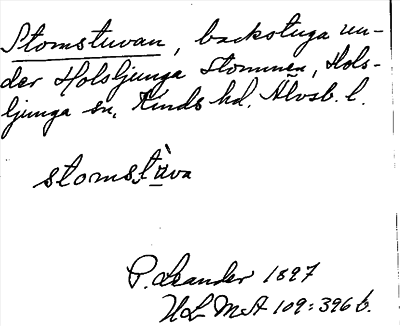 Stomstuvan, backstuga un-
der Holsljunga Stommen, Hols-
ljunga sn, Kinds hd, Älvsb. l.
stomstùva
P. Leander 1897
ULMA 109:396 b.